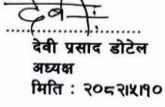 देवी प्रसाद डोटेल
अध्यक्ष
मिति : २०८२।५।१०